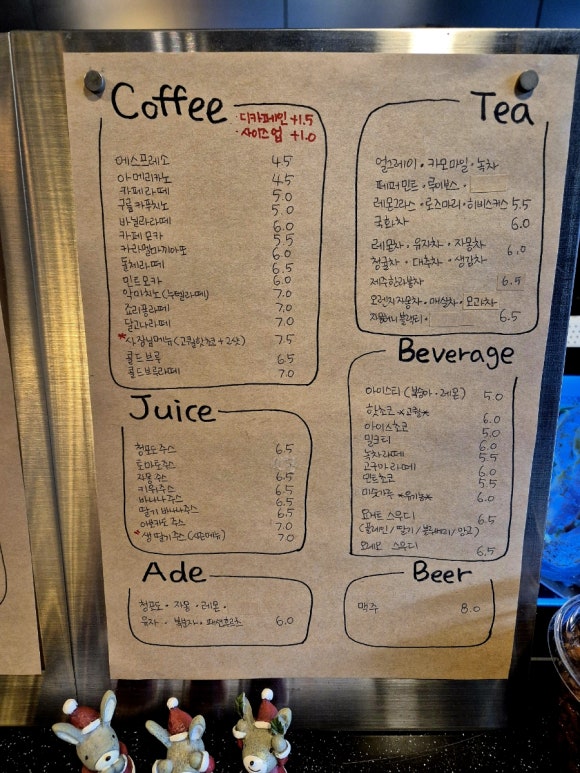 Coffee
디카페인 +1.5
사이즈업 +1.0
에스프레소 4.5
아메리카노 4.5
카페라떼 5.0
구름 카푸치노 5.0
바닐라라떼 6.0
카페모카 5.5
카라멜마끼아또 6.0
돌체라떼 6.5
민트모카 6.0
악마치노 (누텔라라떼) 7.0
죠리퐁라떼 7.0
달고나라떼 7.0
*사장님메뉴 (고퀄핫초코+2샷) 7.5
콜드브루 6.5
콜드브루라떼 7.0
Juice
청포도 주스 6.5
토마토주스
자몽 주스 6.5
키위주스 6.5
바나나주스 6.5
딸기 바나나주스 6.5
아보카도 주스 7.0
*생 딸기주스 (시즌메뉴) 7.0
Ade
청포도 · 자몽 · 레몬 ·
유자 · 복분자 · 패션프루츠 6.0
Tea
얼그레이 · 카모마일 · 녹차
페퍼민트 · 루이보스 ·
레몬그라스 · 로즈마리 · 히비스커스 5.5
국화차 6.0
레몬차 · 유자차 · 자몽차
정귤차 · 대추차 · 생강차 6.0
제주한라봉차 6.5
오렌지자몽차 · 매실차 · 모과차
자몽허니블랙티 · 6.5
Beverage
아이스티 (복숭아 · 레몬) 5.0
핫초코 *고퀄* 6.0
아이스초코 5.0
밀크티 6.0
녹차라떼 5.5
고구마라떼 6.0
민트초코 5.5
미숫가루 *유기농* 6.0
요거트 스무디 6.5
(플레인 / 딸기 / 블루베리 / 망고)
오레오 스무디 6.5
Beer
맥주 8.0